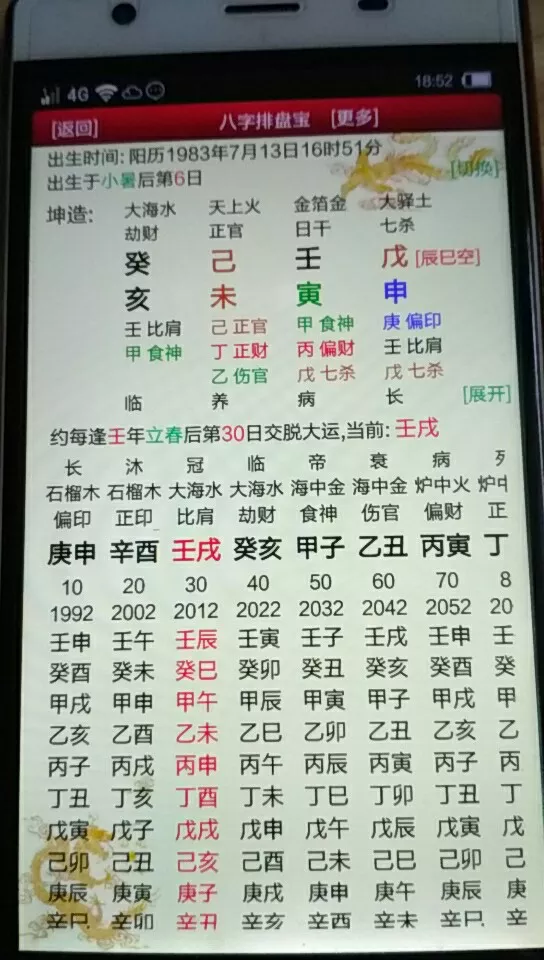 4G 18:52
[返回] 八字排盘宝 [更多]
出生时间: 阳历1983年7月13日16时51分
出生于小暑后第6日 [切换]
坤造: 大海水 天上火 金箔金 大驿土
劫财 正官 日干 七杀
癸 己 壬 戊 [辰巳空]
亥 未 寅 申
壬 比肩 己 正官 甲 食神 庚 偏印
甲 食神 丁 正财 丙 偏财 壬 比肩
乙 伤官 戊 七杀 戊 七杀
临 养 病 长 [展开]
约每逢壬年立春后第30日交脱大运,当前: 壬戌
长 沐 冠 临 帝 衰 病
石榴木 石榴木 大海水 大海水 海中金 海中金 炉中火 炉中
偏印 正印 比肩 劫财 食神 伤官 偏财 正
庚申 辛酉 壬戌 癸亥 甲子 乙丑 丙寅 丁
10 20 30 40 50 60 70 8
1992 2002 2012 2022 2032 2042 2052 20
壬申 壬午 壬辰 壬寅 壬子 壬戌 壬申 壬
癸酉 癸未 癸巳 癸卯 癸丑 癸亥 癸酉 癸
甲戌 甲申 甲午 甲辰 甲寅 甲子 甲戌 甲
乙亥 乙酉 乙未 乙巳 乙卯 乙丑 乙亥 乙
丙子 丙戌 丙申 丙午 丙辰 丙寅 丙子 丙
丁丑 丁亥 丁酉 丁未 丁巳 丁卯 丁丑 丁
戊寅 戊子 戊戌 戊申 戊午 戊辰 戊寅 戊
己卯 己丑 己亥 己酉 己未 己巳 己卯 己
庚辰 庚寅 庚子 庚戌 庚申 庚午 庚辰 庚
辛巳 辛卯 辛丑 辛亥 辛酉 辛未 辛巳 辛